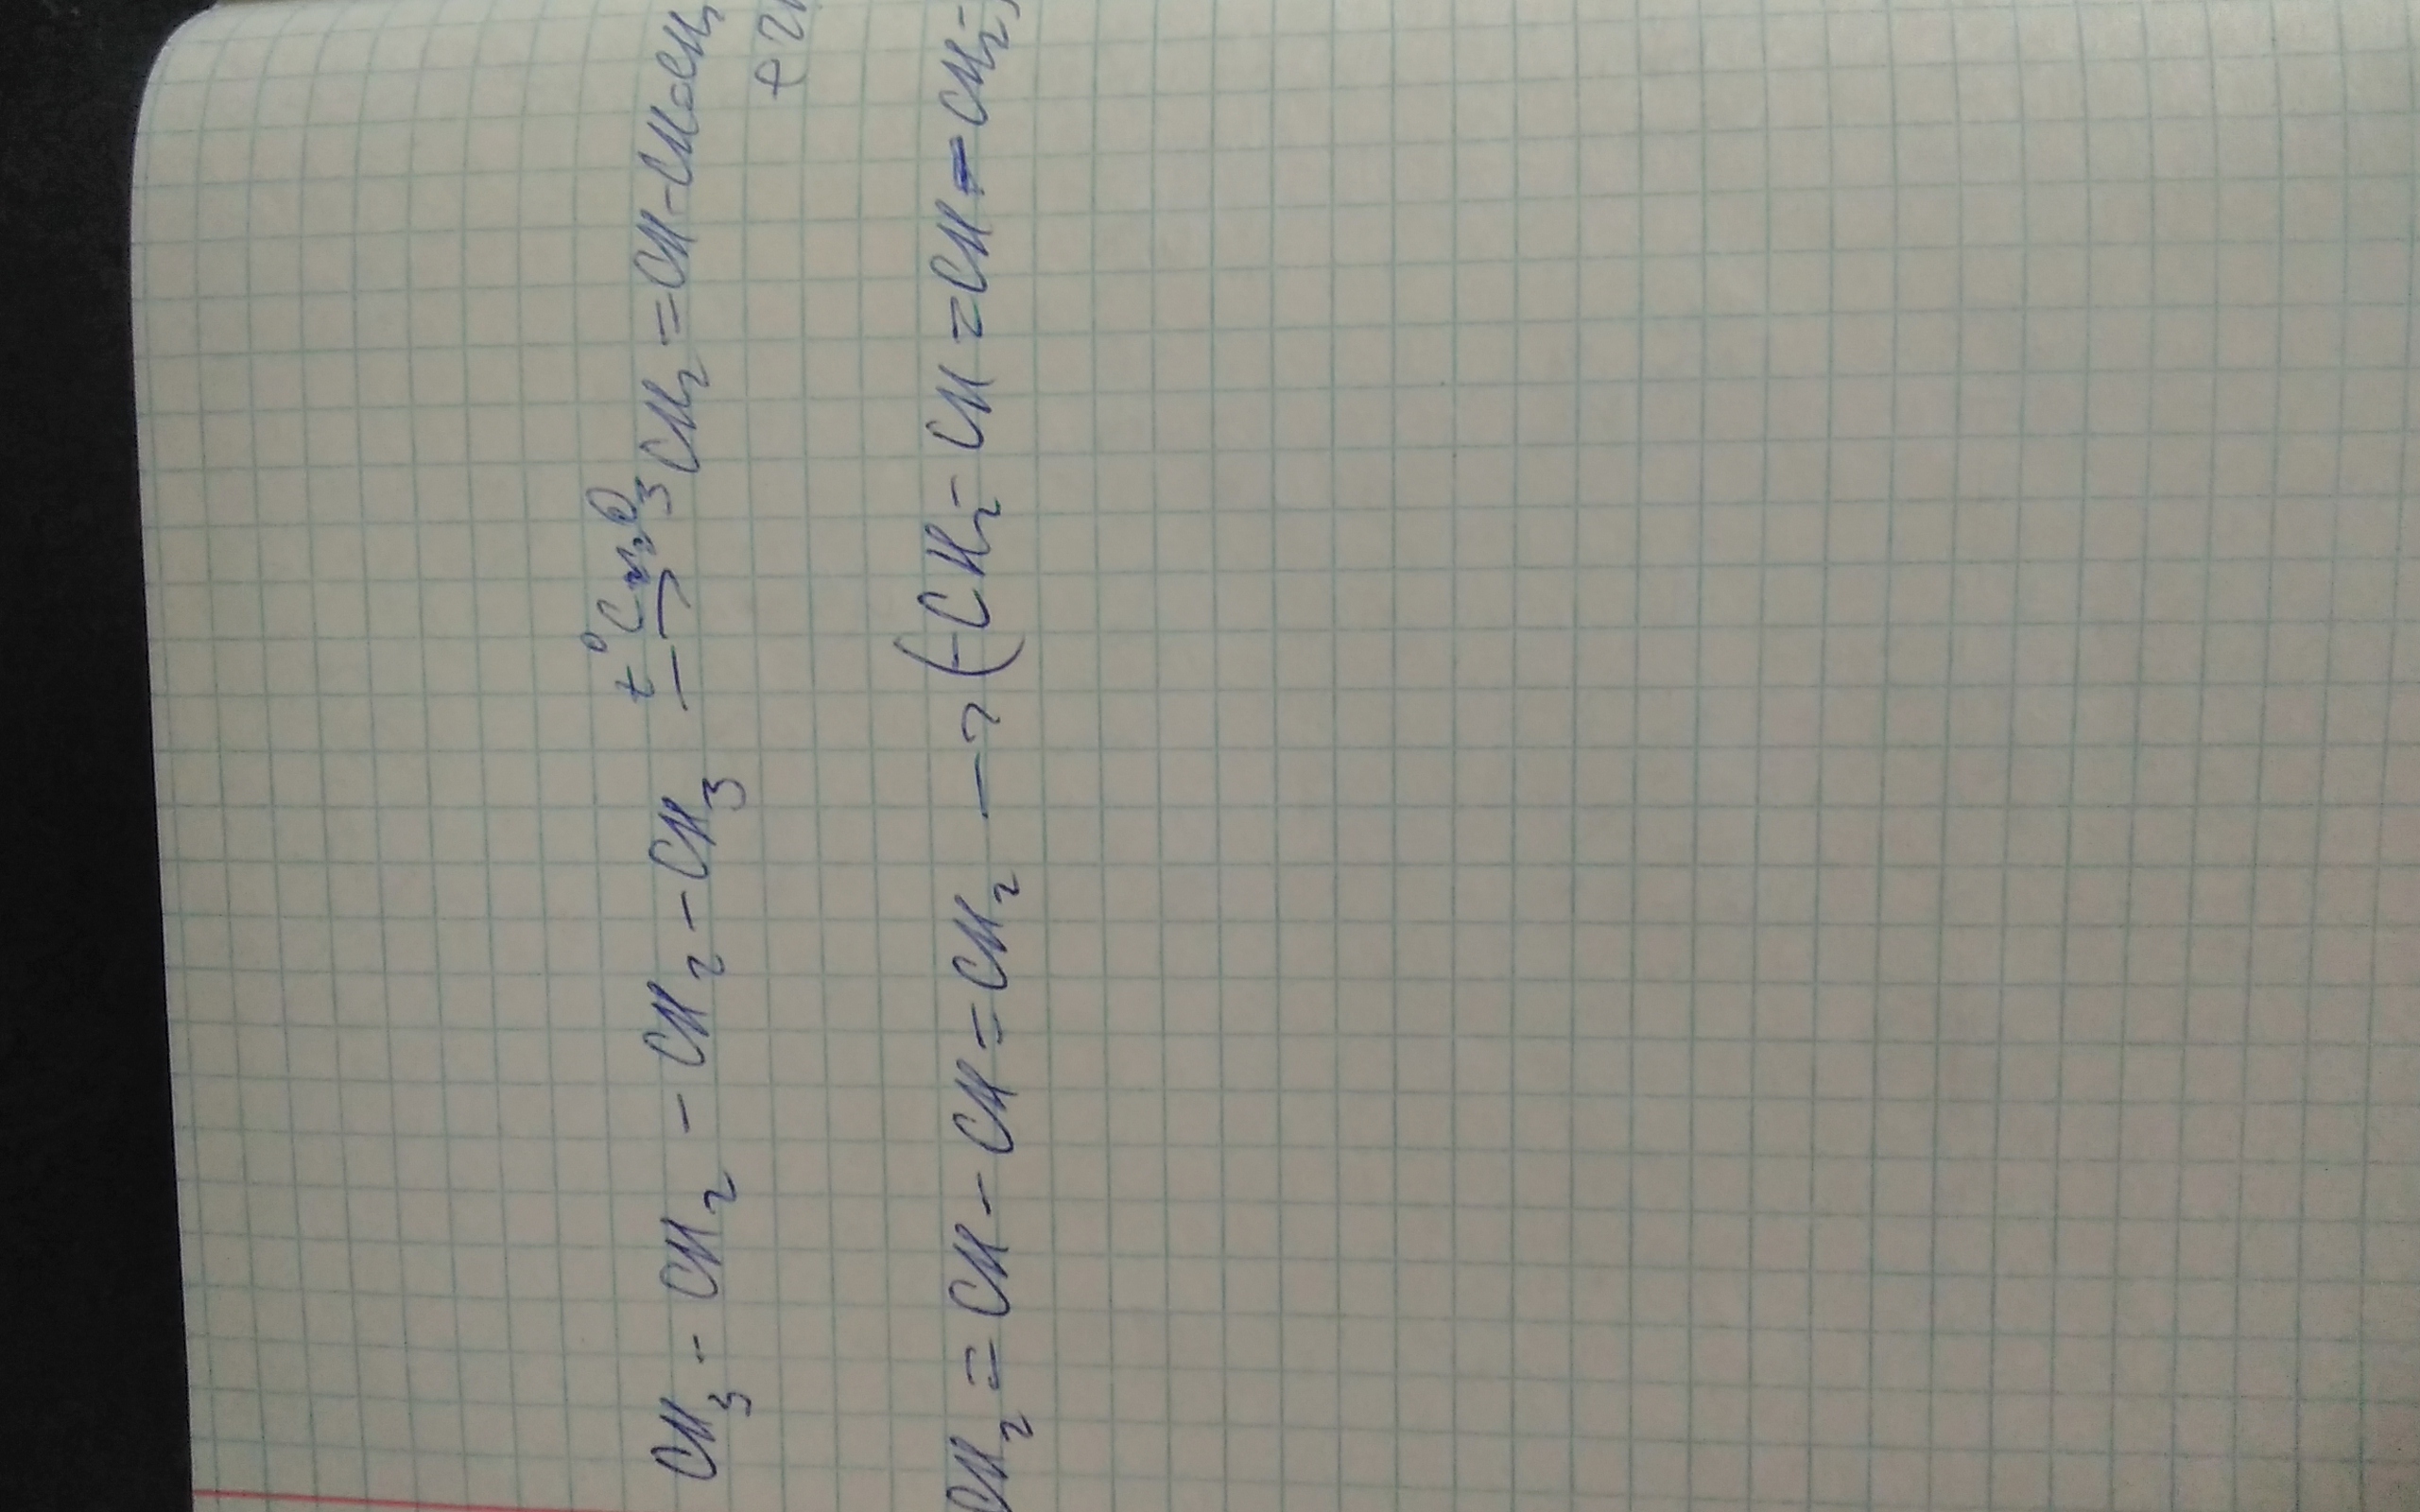 CH3 - CH2 - CH2 - CH3 t°Cr2O3→ CH2=CH-CH=CH2
+ 2
CH2=CH-CH=CH2 → (-CH2-CH=CH-CH2-)